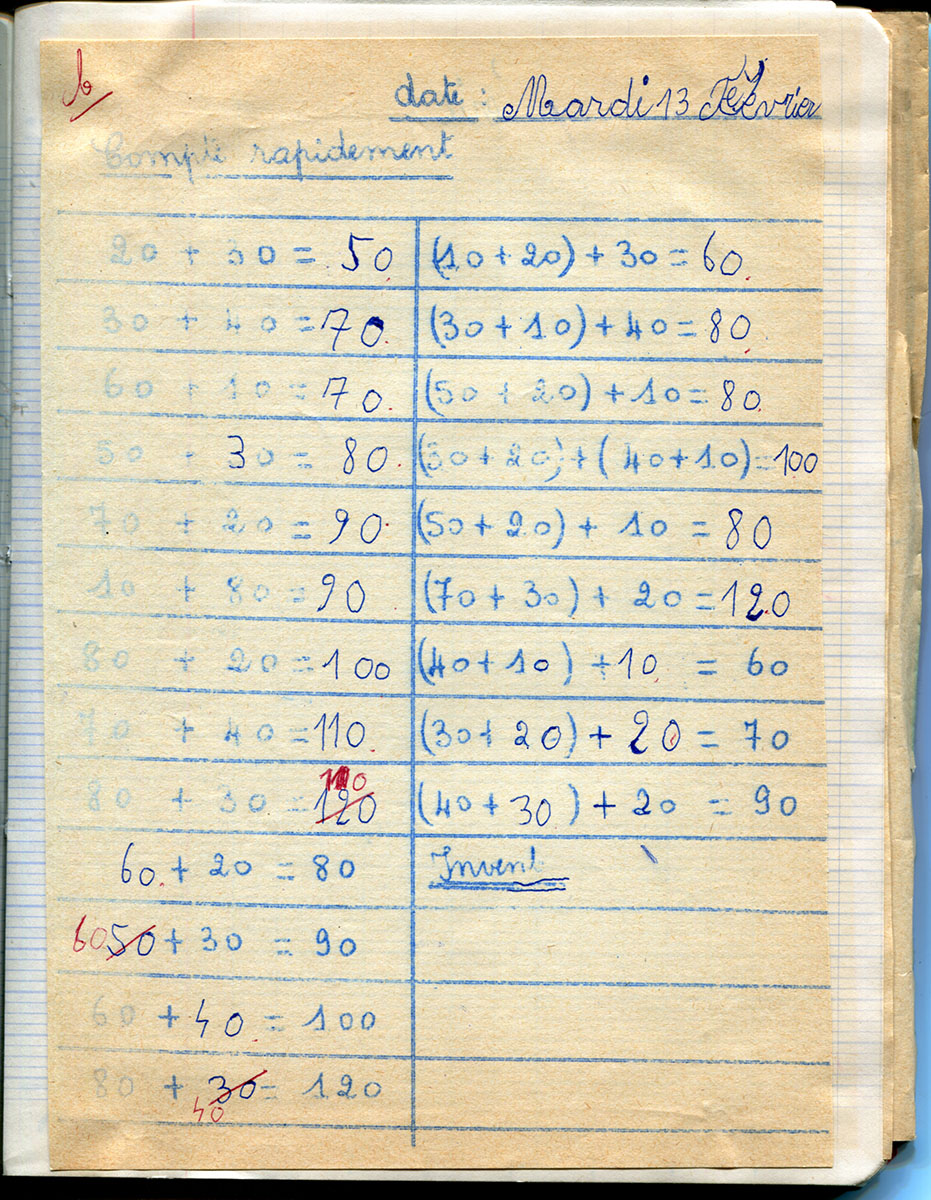 b
date : Mardi 13 Février
Compte rapidement
20 + 30 = 50
30 + 40 = 70
60 + 10 = 70
50 + 30 = 80
70 + 20 = 90
10 + 80 = 90
80 + 20 = 100
70 + 40 = 110
80 + 30 = 120 110
60 + 20 = 80
60 50 + 30 = 90
60 + 40 = 100
80 + 30 = 120
40
(10 + 20) + 30 = 60
(30 + 10) + 40 = 80
(50 + 20) + 10 = 80
(30 + 20) + (40 + 10) = 100
(50 + 20) + 10 = 80
(70 + 30) + 20 = 120
(40 + 10) + 10 = 60
(30 + 20) + 20 = 70
(40 + 30) + 20 = 90
Invent